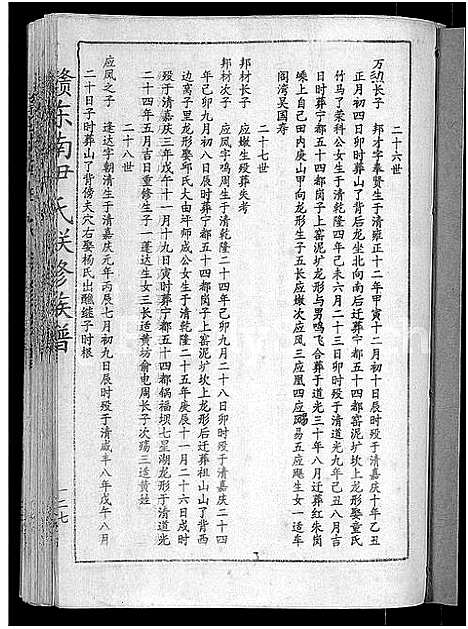 二十六世
万祊长子　邦才字奉贤生于清雍正十二年甲寅十二月初十日辰时殁于清嘉庆十年乙丑
正月初四日卯时葬山了背后龙坐北向南后迁葬宁都五十四都窑泥圹坎上龙形娶童氏
竹马了荣科公女生于清乾隆四年己未六月二十三日卯时殁于清道光九年己丑八月吉
日时葬宁都五十四都岗子上窑泥圹龙形与男鸣飞合葬于道光三十年八月迁葬红朱岗
嵊上自己田内庚山甲向龙形生子五长应嫩次应凤三应凰四应赐易五应飓生女一适车
阁湾吴国寿
二十七世
邦材长子　应嫩生殁葬失考
邦材次子　应凤字鸣周生于清乾隆二十四年己卯九月二十八日卯时殁于清嘉庆二十四
年己卯九月初八日辰时葬宁都五十四都岗子上窑泥圹坎上龙形后迁葬祖山山了背西
边窝子里龙形娶邱氏大由坪师成公女生于清乾隆二十五年庚辰十一月二十六日戌时
殁于清嘉庆三年戊午十一月十九日寅时葬宁都五十四都锅福坝七星湖龙形于清道光
二十四年五月吉日重修生子一蓬达生女三长适黄坊俞电周长子次殇三适黄姓
二十八世
应凤之子　蓬达字朝清生于清嘉庆元年丙辰七月初九日辰时殁于清咸丰八年戊午八月
二十日子时葬山了背傍夫穴右娶杨氏出醮继子时根
赣东南尹氏联修族谱
一二七